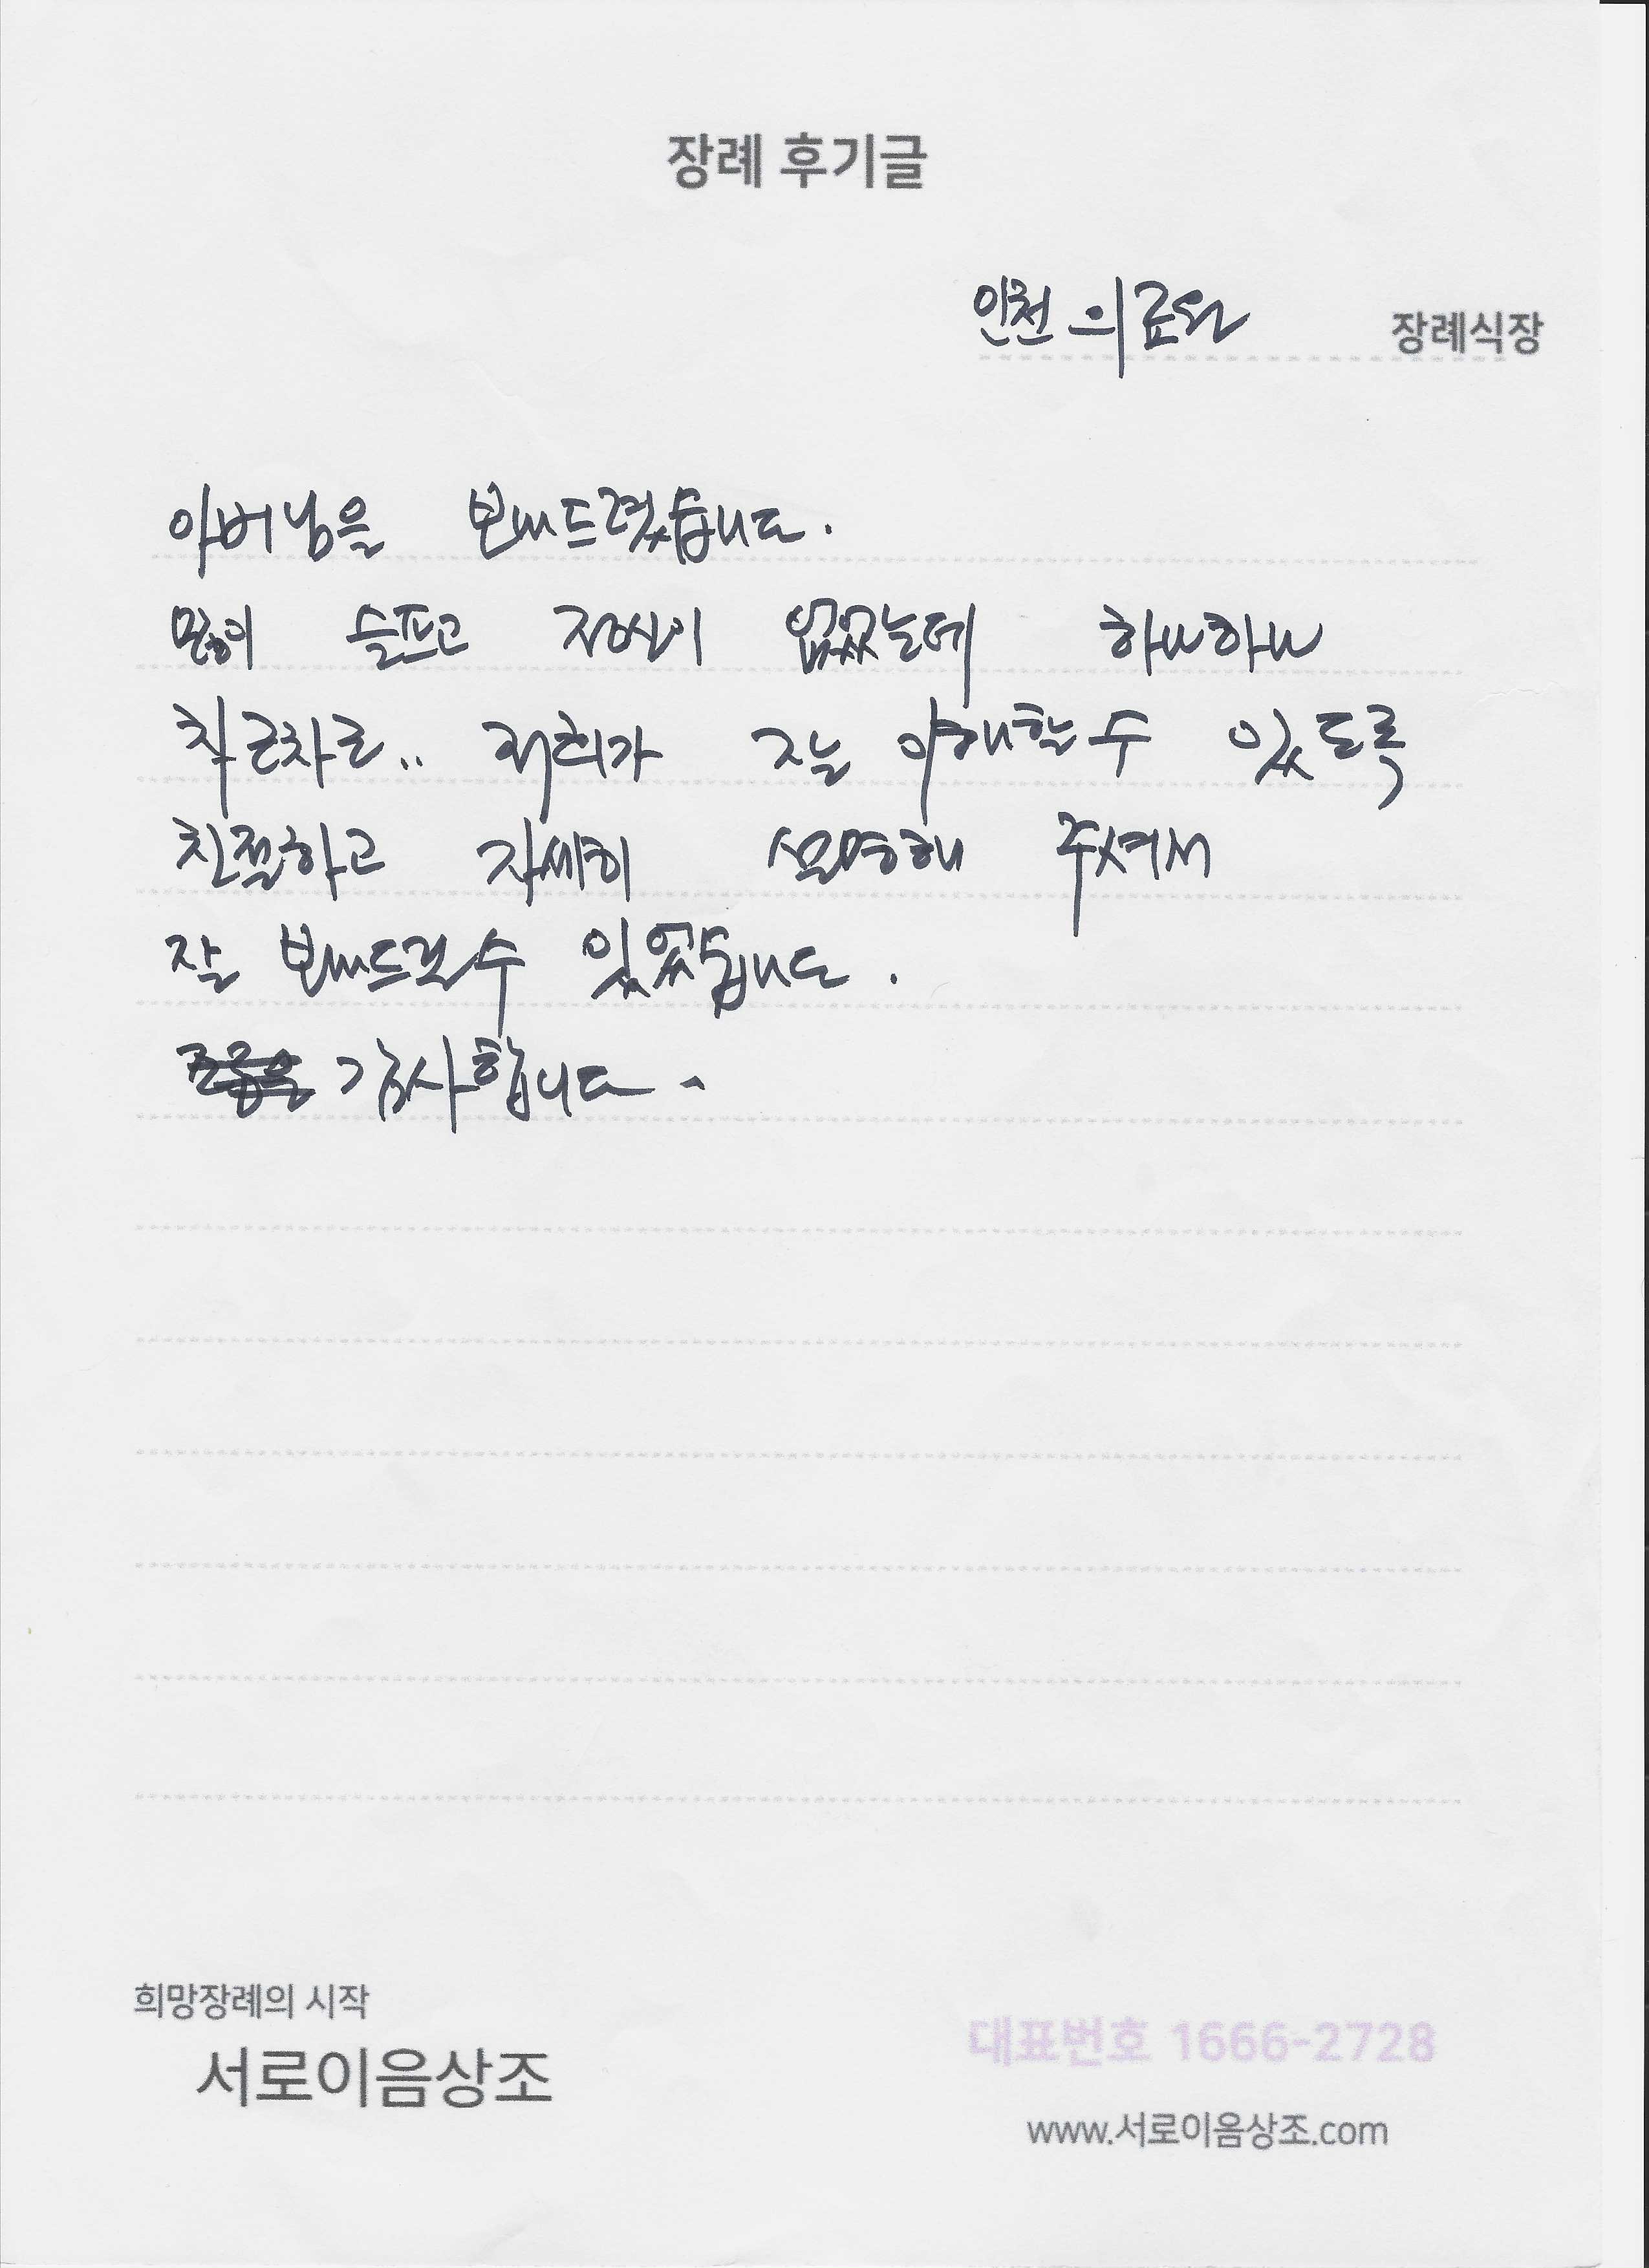 장례 후기글
인천 의료원 장례식장
아버님을 보내드렸습니다.
많이 슬프고 정신이 없었는데 하나하나
차근차근.. 저희가 잘 이해할 수 있도록
친절하고 자세히 설명해 주셔서
잘 보내드릴수 있었습니다.
감사합니다.
희망장례의 시작
서로이음상조
대표번호 1666-2728
www.서로이음상조.com